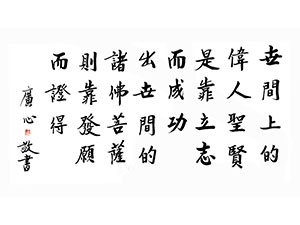 世間上的
偉人聖賢
是靠立志
而成功
出世間的
諸佛菩薩
則靠發願
而證得
廣心敬書